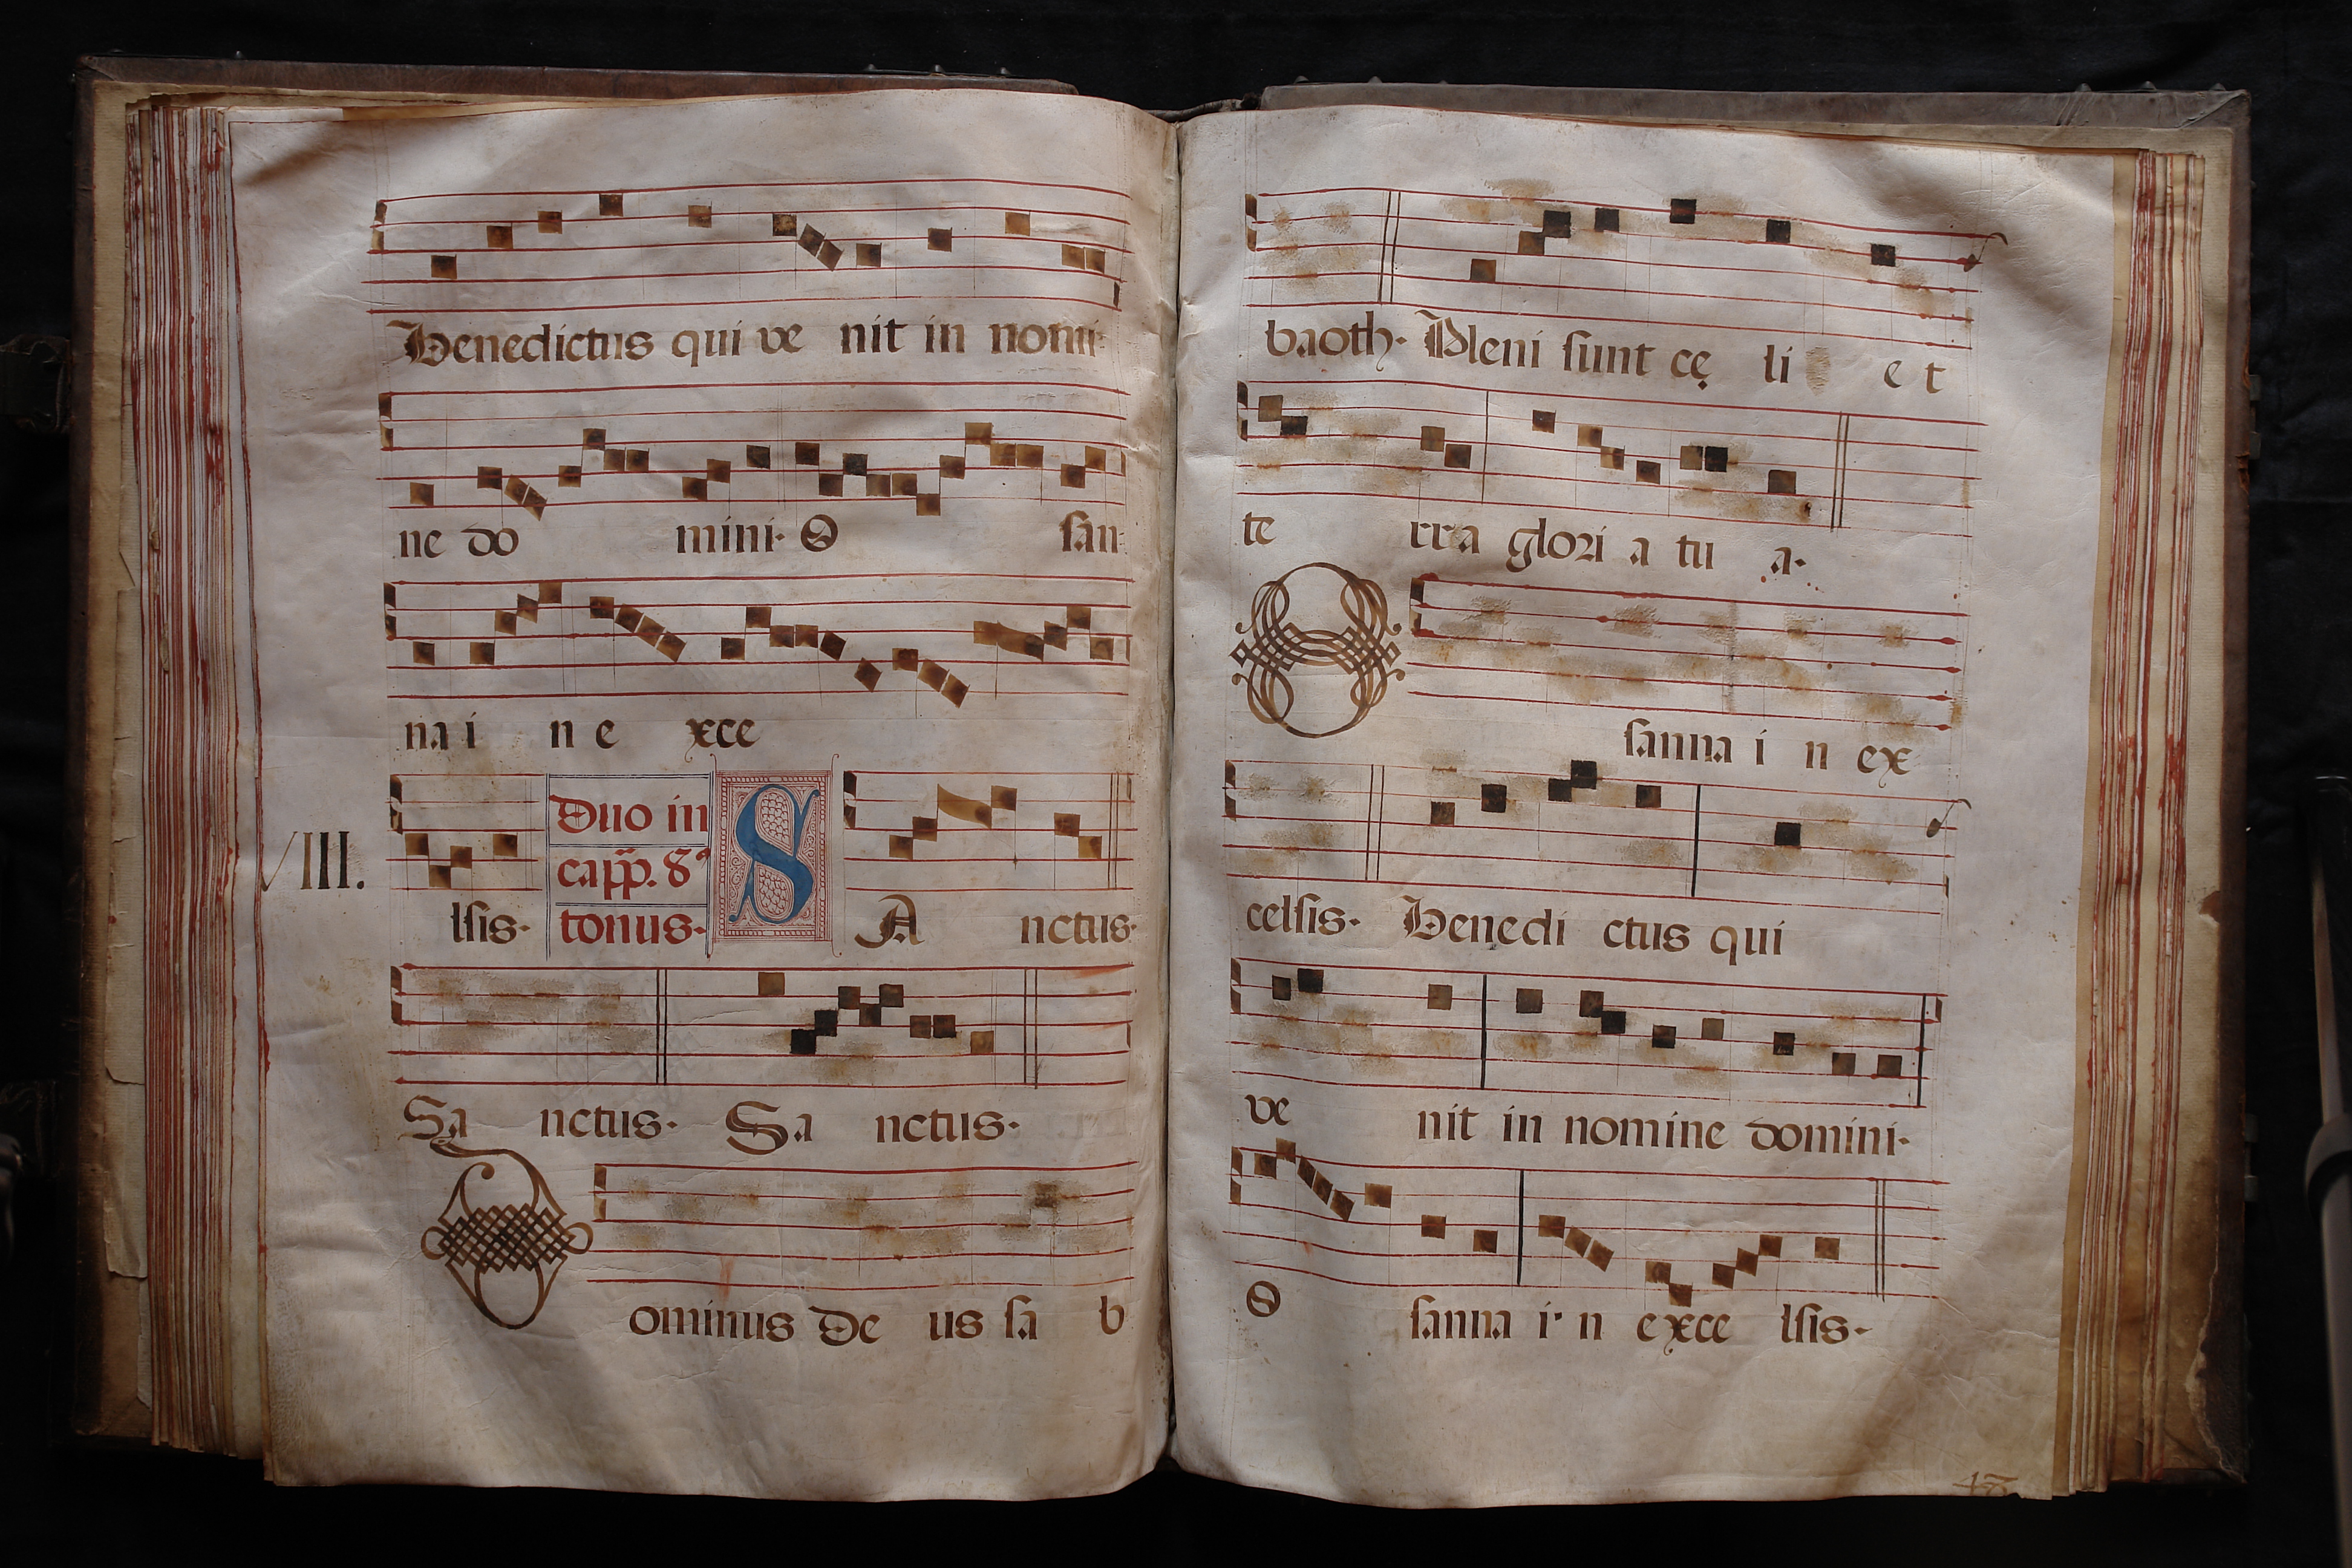 Benedictus qui ve nit in nomi-
ne do mini. O san-
na i n e xce
VIII.
lsis. Duo in
capp. 8ª
tonus. S A nctus.
Sa nctus. Sa nctus.
Dominus De us sa b
baoth. Pleni sunt cę li et
te rra glori a tu a.
O sanna i n ex
celsis. Benedi ctus qui
ve nit in nomine domini.
O sanna i n e xce lsis.